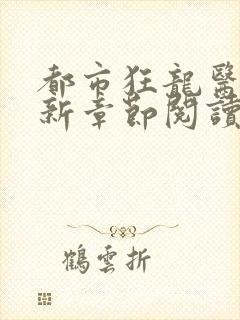 都市狂龍醫
新章節閱讀
鶴雲折